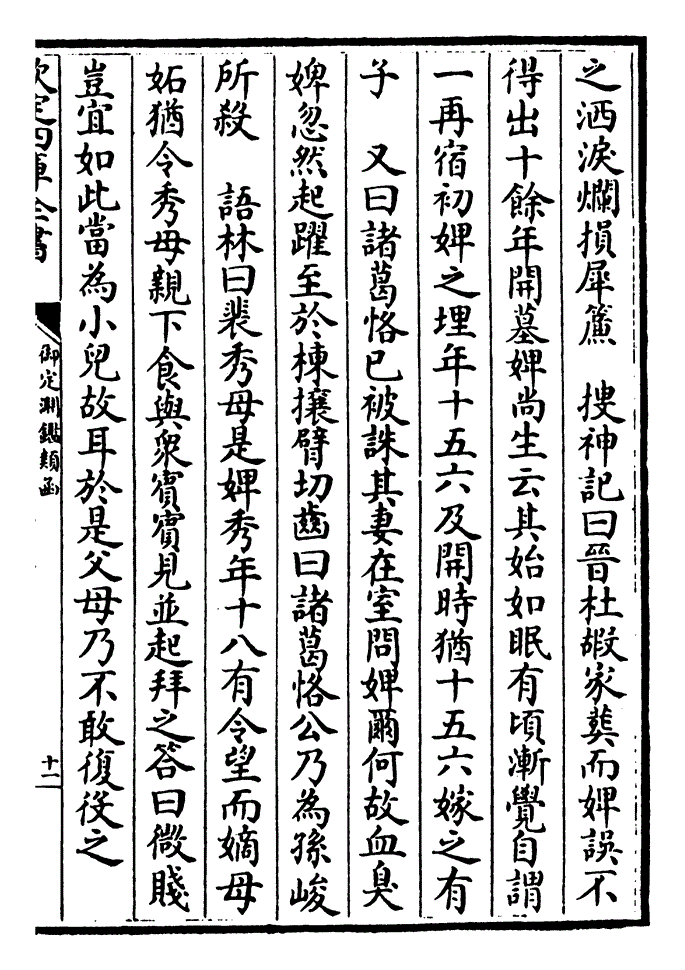 之洒淚爛損犀簾　搜神記曰晉杜嘏家葬而婢誤不
得出十餘年開墓婢尚生云其始如眠有頃漸覺自謂
一再宿初婢之埋年十五六及開時猶十五六嫁之有
子　又曰諸葛恪已被誅其妻在室問婢爾何故血臭
婢忽然起躍至於棟攘臂切齒曰諸葛恪公乃為孫峻
所殺　語林曰裴秀母是婢秀年十八有令望而嫡母
妬猶令秀母親下食與衆賓賓見並起拜之答曰微賤
豈宜如此當為小兒故耳於是父母乃不敢復役之
欽定四庫全書
御定淵鑑類函
十一